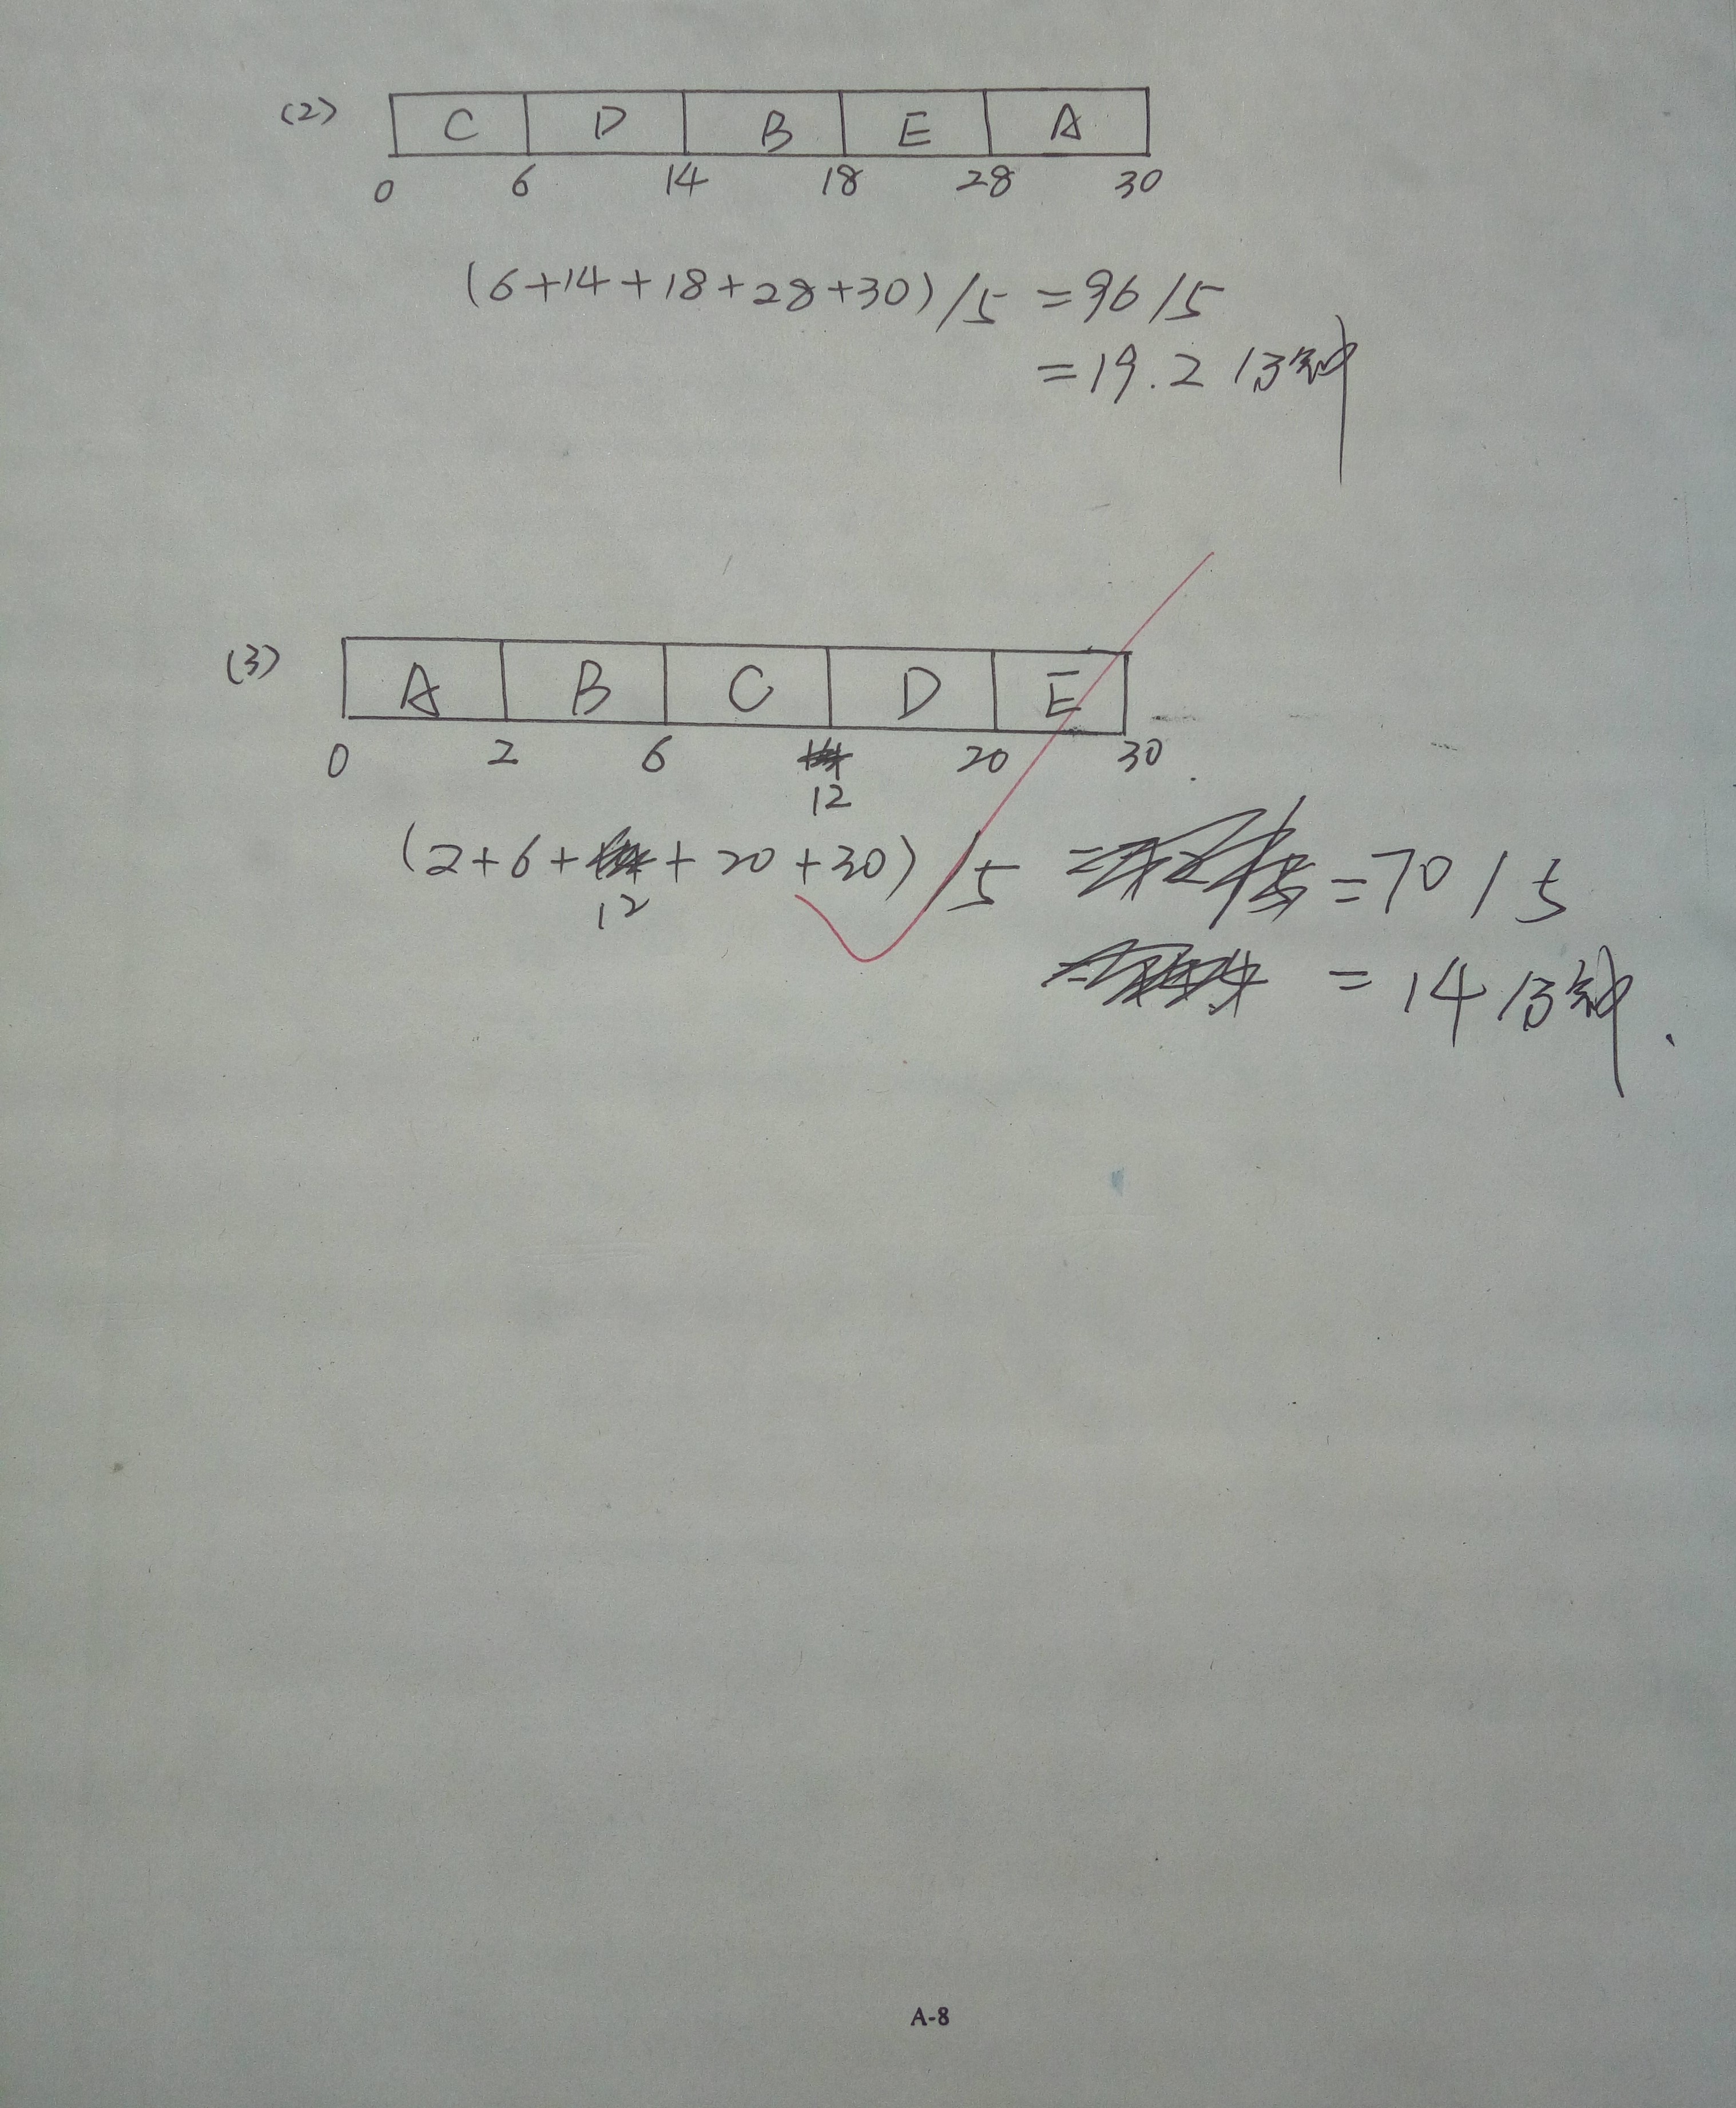 (2) C D B E A
0 6 14 18 28 30
(6+14+18+28+30)/5 =96/5
=19.2分钟
(3) A B C D E
0 2 6 20 30
12
(2+6+ + 20+30)/5 =70/5
12
=14分钟.
A-8